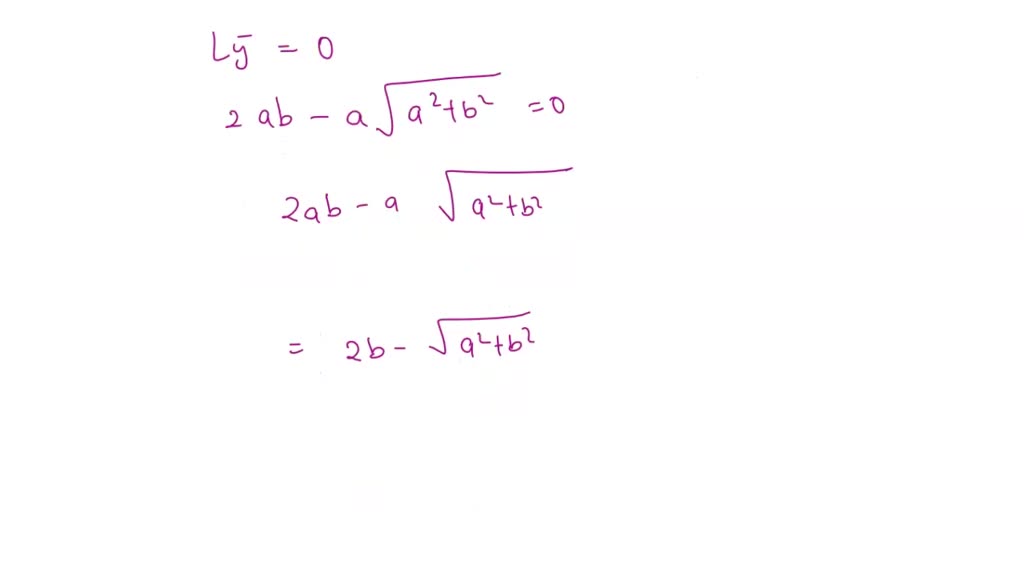 Lȳ = 0
2 ab - a√(a²+b²) = 0
2ab - a √(a²+b²)
= 2b - √(a²+b²)